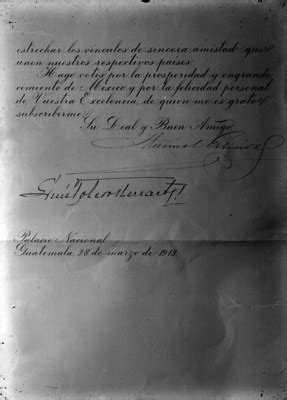 estrechar los vínculos de sincera amistad que
unen nuestros respectivos países.
Hago votos por la prosperidad y engrande
cimiento de México y por la felicidad personal
de Vuestra Excelencia, de quien me es grato
subscribirme
Su Leal y Buen Amigo
Palacio Nacional
Guatemala, 28 de marzo de 1912.